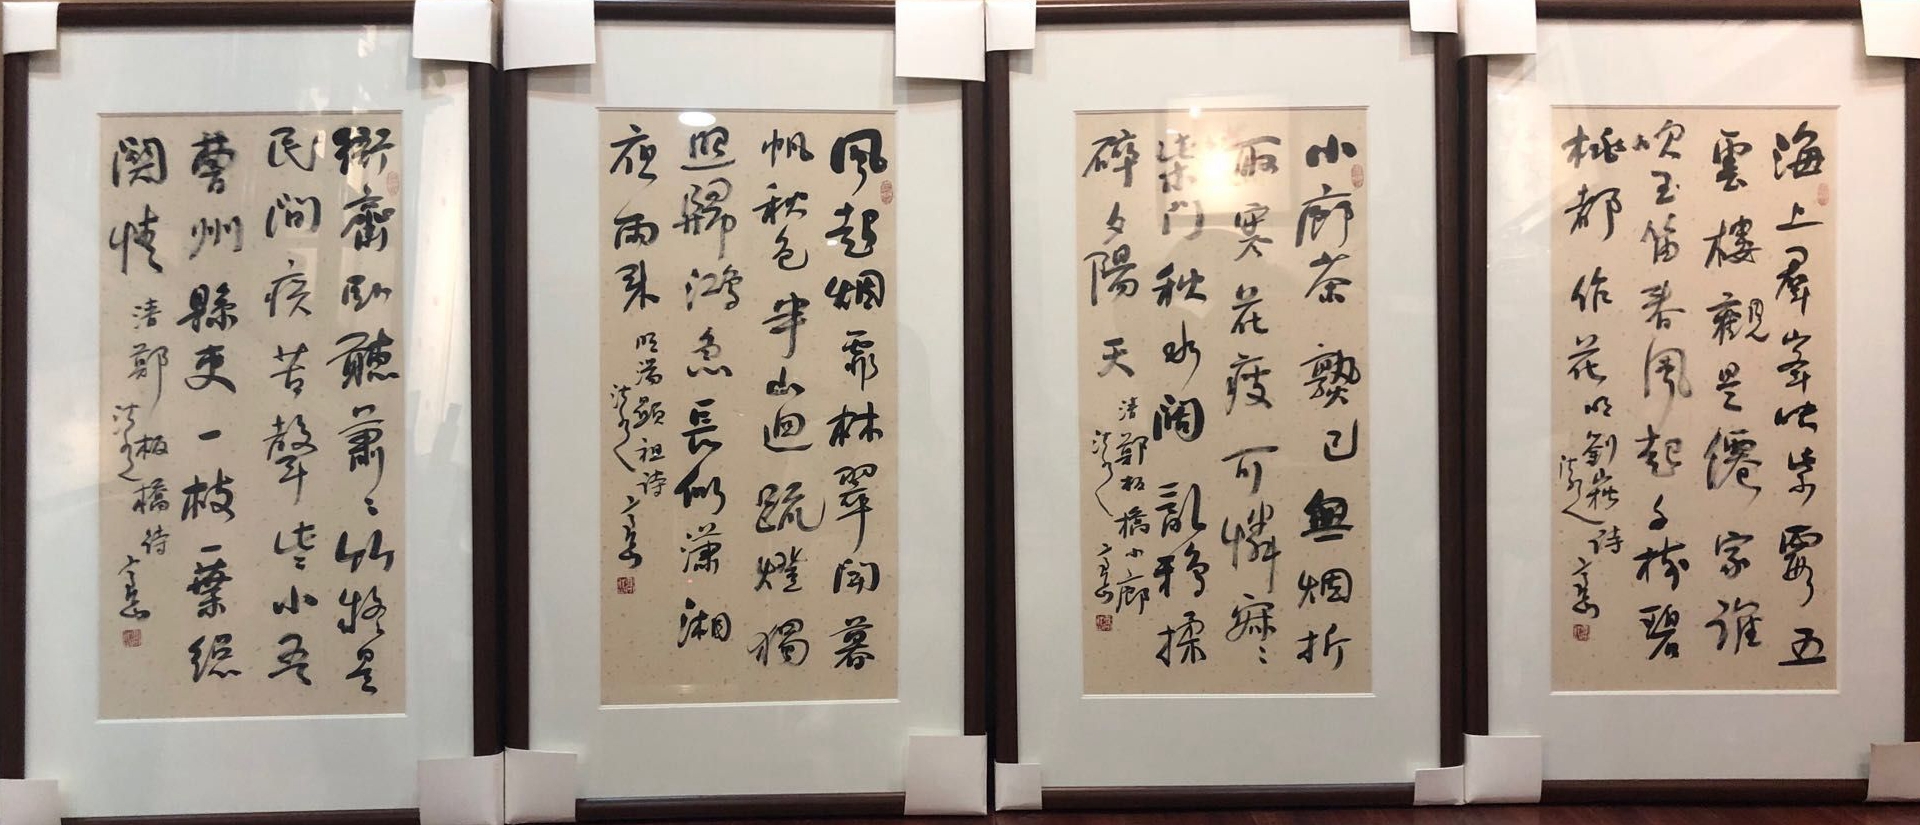 海上羣峯吐紫霞五
雲樓觀是僊家誰
吹玉笛春風起千樹碧
桃都作花 明劉崧詩
小廊茶熟已無烟折
取寒花瘦可憐寂〻
柴門秋水闊亂鴉揉
碎夕陽天 清鄭板橋小廊
風起烟霏林翠開暮
帆秋色半山迴疏燈獨
照歸鴻急長似瀟湘
夜雨來 明湯顯祖詩
衙齋臥聽蕭〻竹疑是
民間疾苦聲些小吾
曹州縣吏一枝一葉總
關情 清鄭板橋詩